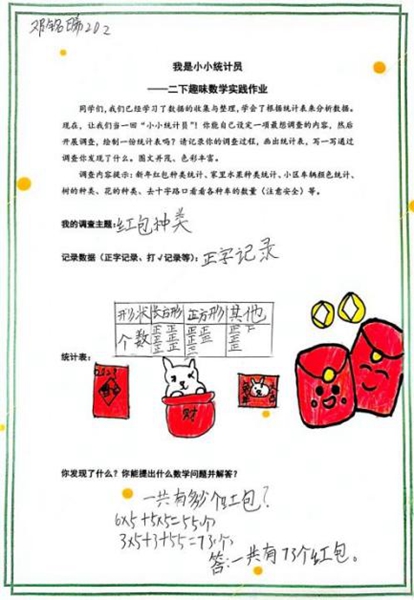 邓铭瑞202
我是小小统计员
——二下趣味数学实践作业
同学们,我们已经学习了数据的收集与整理,学会了根据统计表来分析数据。
现在,让我们当一回“小小统计员”!你能自己设定一项最想调查的内容,然后
开展调查,绘制一份统计表吗?请记录你的调查过程,画出统计表,写一写通过
调查你发现了什么。图文并茂、色彩丰富。
调查内容提示:新年红包种类统计、家里水果种类统计、小区车辆颜色统计、
树的种类、花的种类、去十字路口看看各种车的数量(注意安全)等。
我的调查主题:红包种类
记录数据(正字记录、打√记录等):正字记录
形状 长方形 正方形 其他
个数 正正正正正正 正正正正正 正正正下
统计表:
财
你发现了什么?你能提出什么数学问题并解答?
一共有多少个红包?
6×5+5×5=55个
3×5+3+55=73个
答:一共有73个红包。